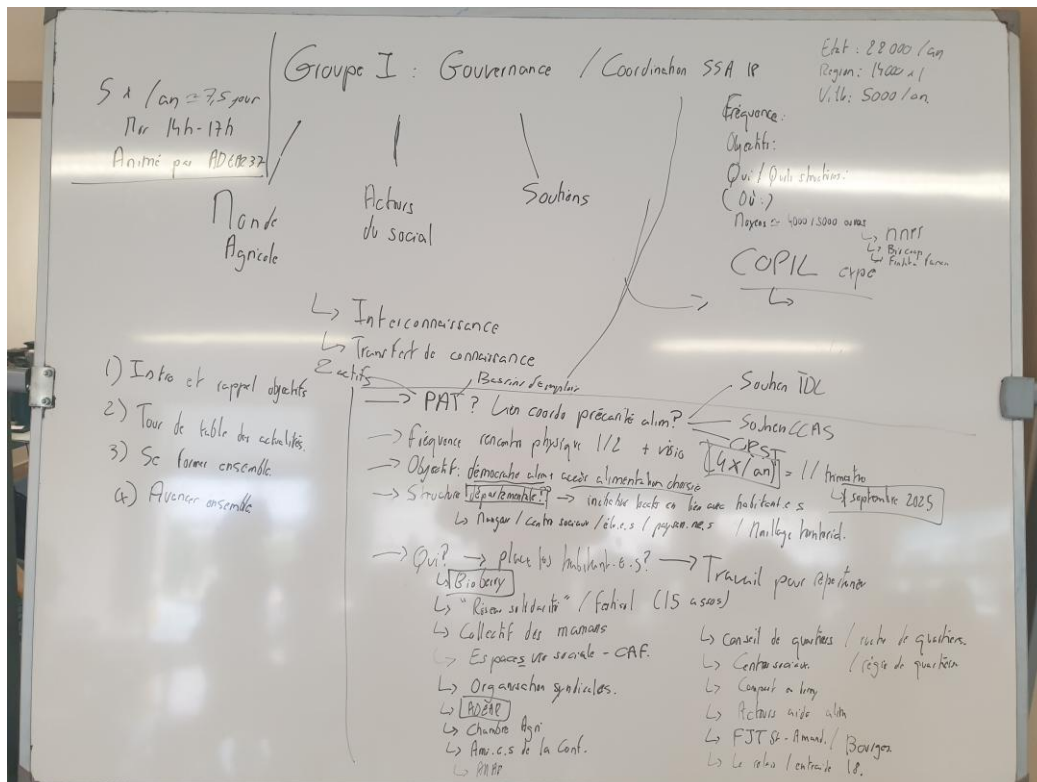 Groupe I : Gouvernance / Coordination SSA 18
5 x /an = 7,5 jour
Mer 14h-17h
Animé par ADEAR 37
Monde
Agricole
Acteurs
du social
Soutiens
Etat : 28 000 / an
Region : 14000 x 1
Ville : 5000 / an
Fréquence :
Objectifs :
Qui / Quels structures :
(Où :)
Moyens = 4000 / 5000 euros
↳ Biocoop
COPIL
↳
↳ Interconnaissance
↳ Transfert de connaissance
1) Intro et rappel objectifs
2) Tour de table des actualités.
3) Se former ensemble
4) Avancer ensemble
2 actifs
Besoins d'emplois
→ PAT ? Lien coordo précarité alim ?
Soutien TDL
Soutien CCAS
→ Fréquence rencontre physique 1/2 + visio [4x/an] = 1 / trimestre
↳ septembre 2025
→ Objectif : démocratie alim + accès alimentation choisie
→ Structure départementale ? → initiative locales en lien avec habitant.e.s
↳ Manger / centre sociaux / élu.e.s / paysan.ne.s / Maillage territorial.
→ Qui ? → place des habitant.e.s ? → Travail pour représenter
↳ Bio berry
↳ "Réseau solidarité" / Festival (15 assos)
↳ Collectif des mamans
↳ Espaces vie sociale - CAF.
↳ Organisation syndicales.
↳ ADEAR
↳ Chambre Agri
↳ Ami.e.s de la Conf.
↳ AMAP
↳ Conseil de quartiers / de quartiers.
↳ Centre sociaux. / régie de quartiers
↳ Compost en berry
↳ Acteurs aide alim
↳ FJT St-Amand. / Bourges
↳ Le relais / entraide 18.